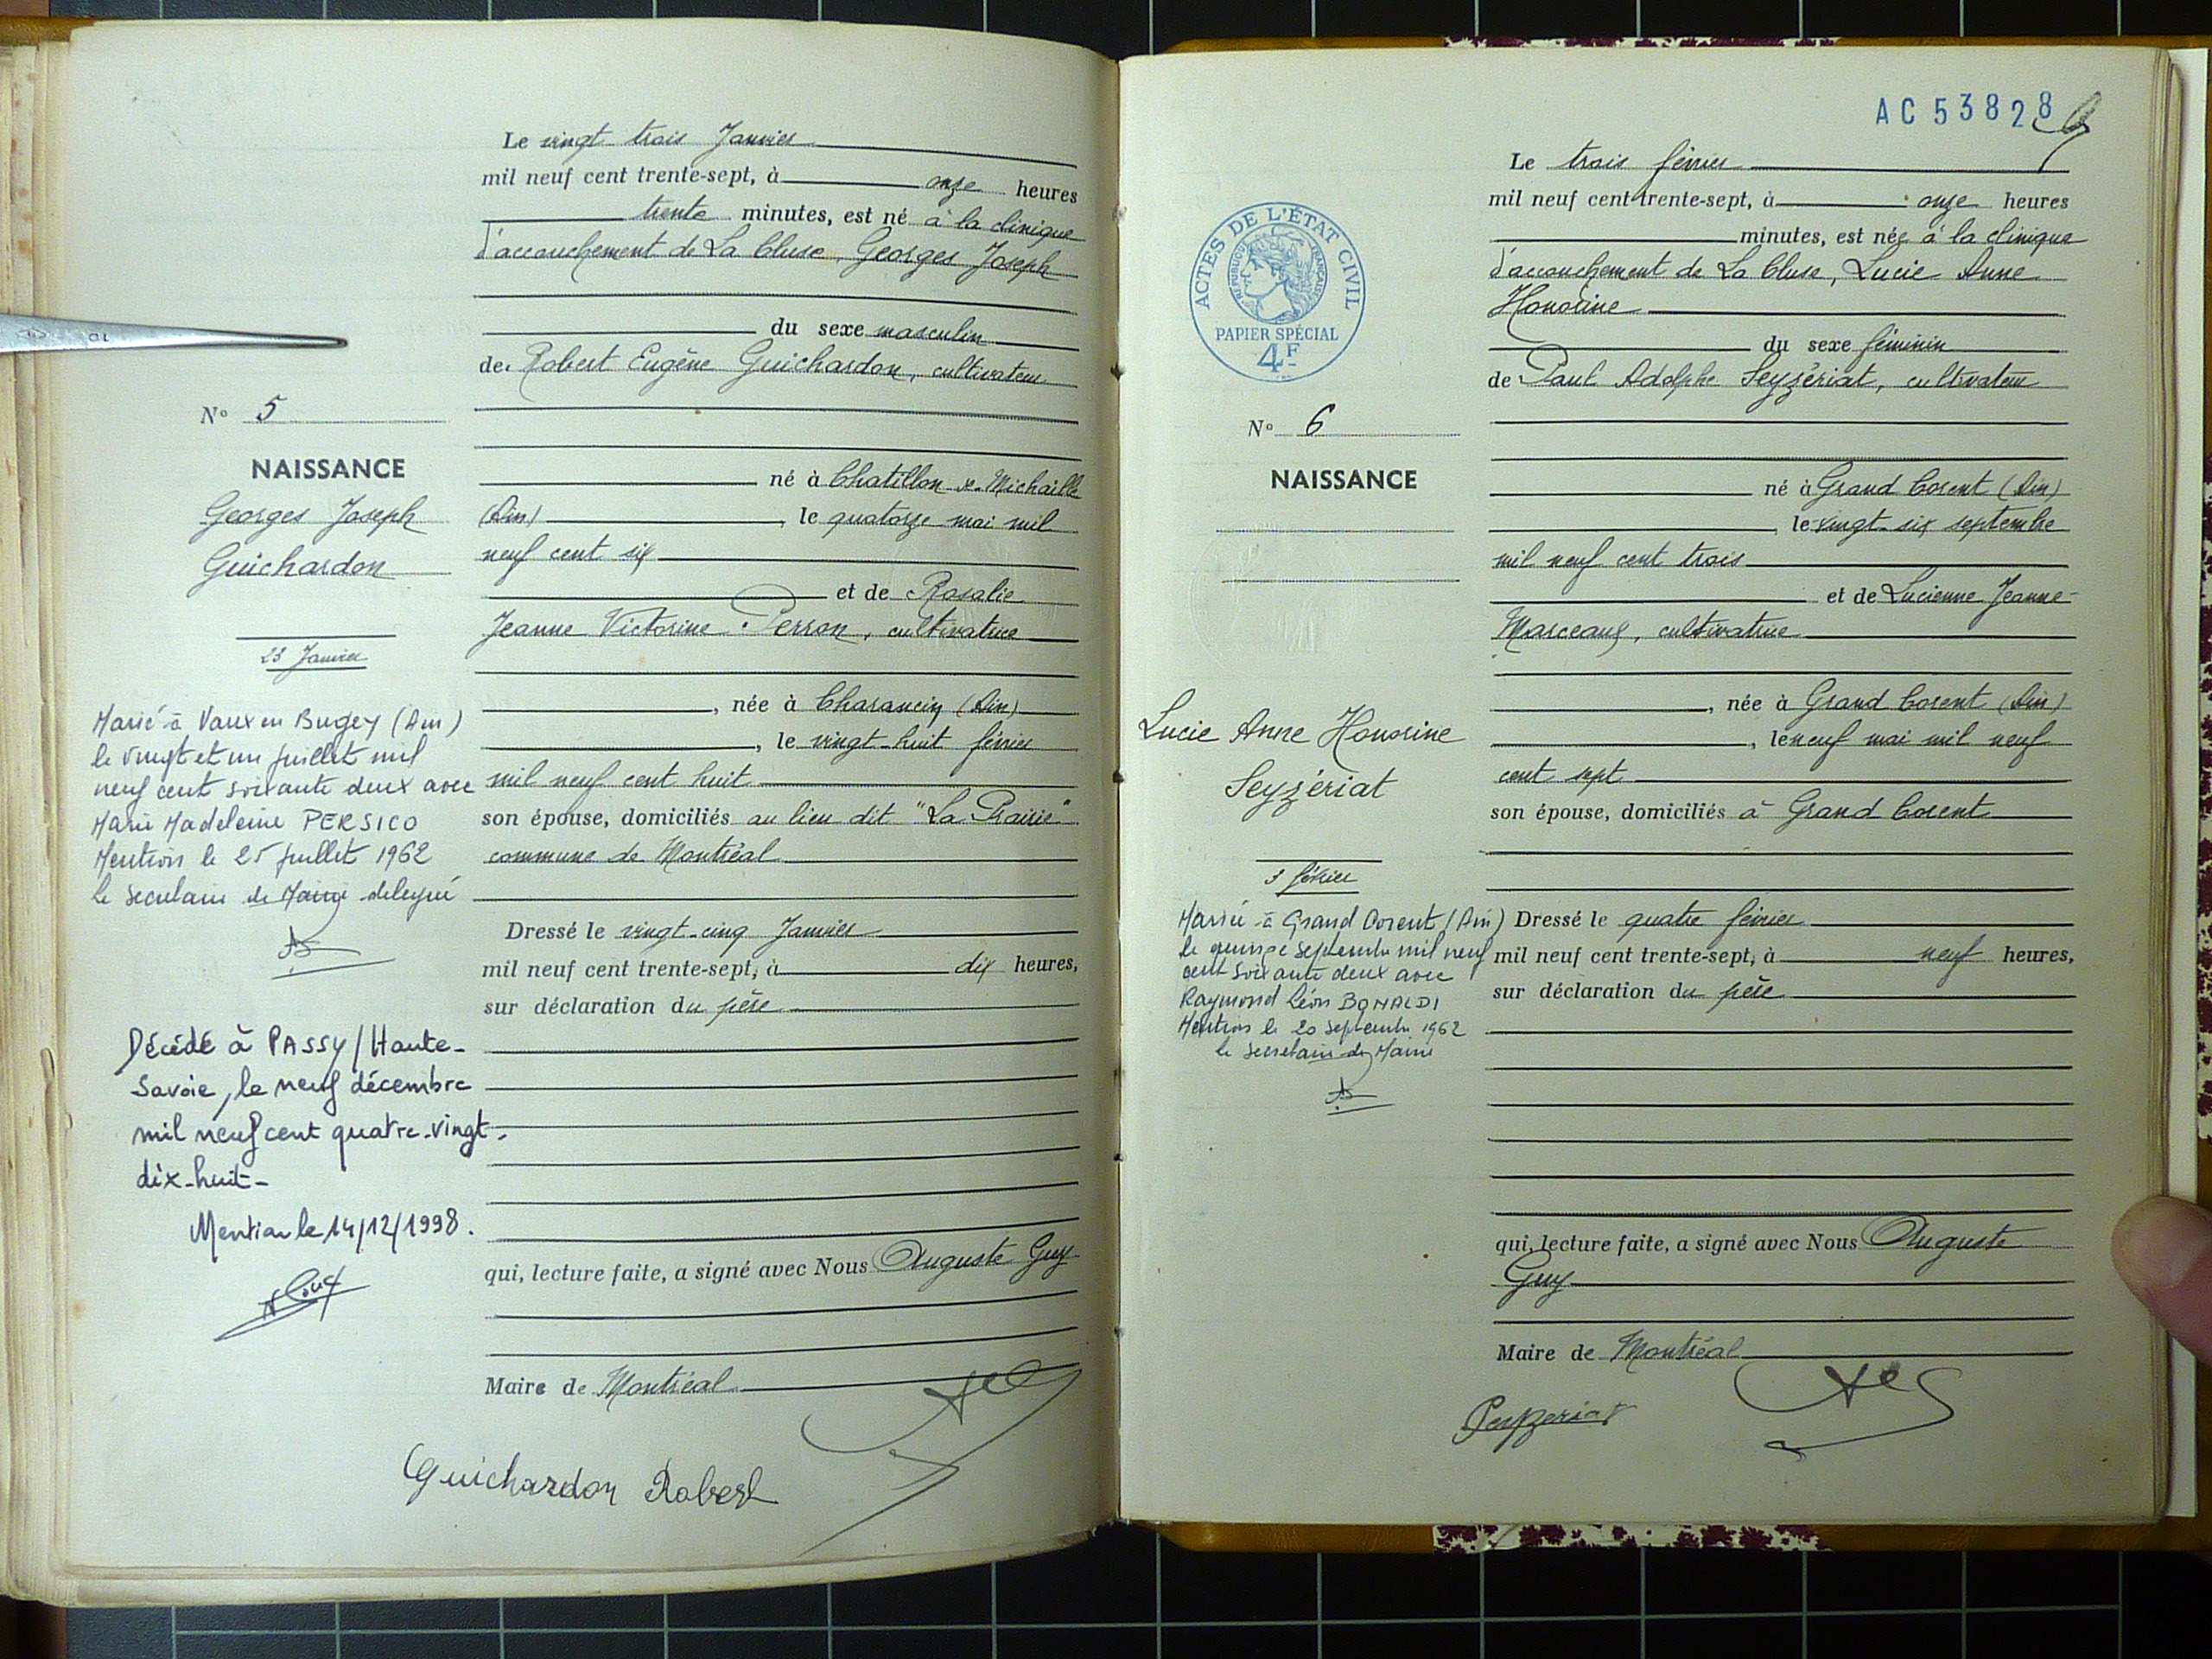 Le vingt trois Janvier
mil neuf cent trente-sept, à onze heures
trente minutes, est né à la clinique
d'accouchement de La Cluse, Georges Joseph
du sexe masculin
de Robert Eugène Guichardon, cultivateur
N° 5
NAISSANCE
Georges Joseph
Guichardon
23 Janvier
né à Chatillon-de-Michaille
(Ain), le quatorze mai mil
neuf cent six
et de Rosalie
Jeanne Victorine Perron, cultivatrice
, née à Charancin (Ain)
, le vingt-huit février
mil neuf cent huit
son épouse, domiciliés au lieu dit "La Prairie"
commune de Montréal
Dressé le vingt-cinq Janvier
mil neuf cent trente-sept, à dix heures,
sur déclaration du père
qui, lecture faite, a signé avec Nous Auguste Guy
Maire de Montréal
Guichardon Robert
Marié à Vaux en Bugey (Ain)
le vingt et un juillet mil
neuf cent soixante deux avec
Marie Madeleine PERSICO
Mention le 25 juillet 1962
le secrétaire de Mairie délégué
Décédé à PASSY/Haute-
Savoie, le neuf décembre
mil neuf cent quatre-vingt-
dix-huit-
Mention le 14/12/1998.
AC 53828
6
Le trois février
mil neuf cent trente-sept, à onze heures
minutes, est née à la clinique
d'accouchement de La Cluse, Lucie Anne
Honorine
du sexe féminin
de Paul Adolphe Seyzériat, cultivateur
ACTES DE L'ÉTAT CIVIL
RÉPUBLIQUE FRANÇAISE
PAPIER SPÉCIAL
4F
N° 6
NAISSANCE
Lucie Anne Honorine
Seyzériat
3 février
né à Grand Corent (Ain)
le vingt-six septembre
mil neuf cent trois
et de Lucienne Jeanne
Marceaux, cultivatrice
, née à Grand Corent (Ain)
, le neuf mai mil neuf
cent sept
son épouse, domiciliés à Grand Corent
Dressé le quatre février
mil neuf cent trente-sept, à neuf heures,
sur déclaration du père
qui, lecture faite, a signé avec Nous Auguste
Guy
Maire de Montréal
Seyzeriat
Mariée à Grand Corent (Ain)
le quinze septembre mil neuf
cent soixante deux avec
Raymond Léon BONALDI
Mention le 20 septembre 1962
le secrétaire de Mairie